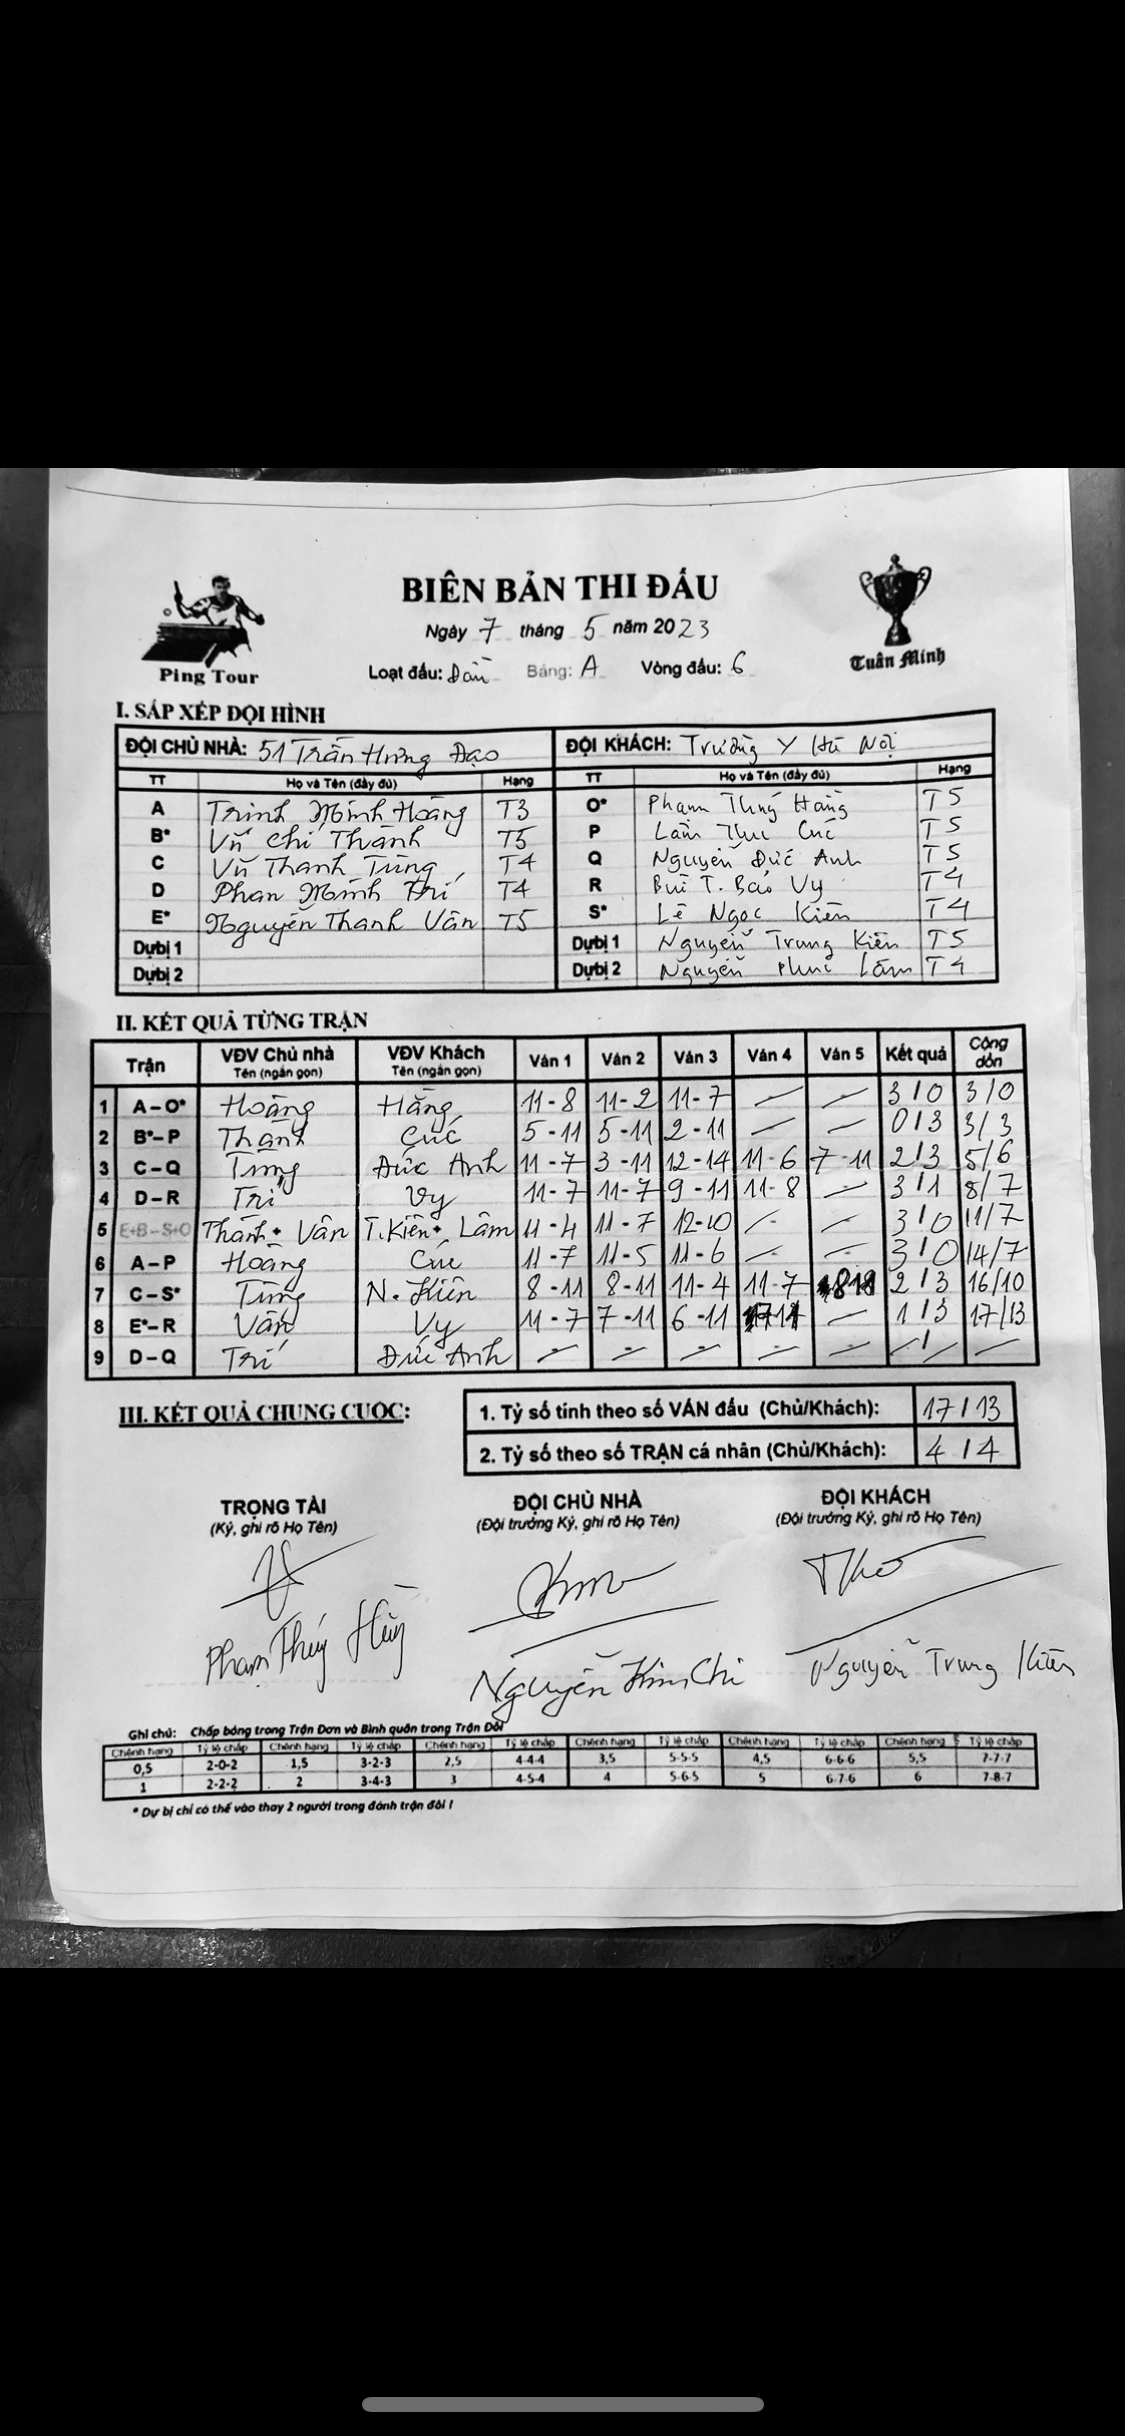 BIÊN BẢN THI ĐẤU
Ngày 7 tháng 5 năm 2023
Ping Tour
Loạt đấu: Bảng: A Vòng đấu: 6
Tuấn Minh
I. SẮP XẾP ĐỘI HÌNH
ĐỘI CHỦ NHÀ: 51 Trần Hưng Đạo ĐỘI KHÁCH: Trường Y Hà Nội
TT Họ và Tên (đầy đủ) Hạng TT Họ và Tên (đầy đủ) Hạng
A Trịnh Minh Hoàng T3 O* Phạm Thuý Hằng T5
B* Vũ Chí Thành T5 P Lâm Thu Cúc T5
C Vũ Thanh Tùng T4 Q Nguyễn Đức Anh T5
D Phan Minh Trí T4 R Bùi T. Bảo Vy T4
E* Nguyễn Thanh Vân T5 S* Lê Ngọc Kiên T4
Dự bị 1 Dự bị 1 Nguyễn Trung Kiên T5
Dự bị 2 Dự bị 2 Nguyễn Phúc Lâm T4
II. KẾT QUẢ TỪNG TRẬN
Trận VĐV Chủ nhà Tên (ngắn gọn) VĐV Khách Tên (ngắn gọn) Ván 1 Ván 2 Ván 3 Ván 4 Ván 5 Kết quả Cộng dồn
1 A – O* Hoàng Hằng 11-8 11-2 11-7 — — 3/0 3/0
2 B*– P Thành Cúc 5-11 5-11 2-11 — — 0/3 3/3
3 C – Q Tùng Đức Anh 11-7 3-11 12-14 11-6 7-11 2/3 5/6
4 D – R Trí Vy 11-7 11-7 9-11 11-8 — 3/1 8/7
5 E+B – S+O Thành + Vân T.Kiên + Lâm 11-4 11-7 12-10 — — 3/0 11/7
6 A – P Hoàng Cúc 11-7 11-5 11-6 — — 3/0 14/7
7 C – S* Tùng N. Kiên 8-11 8-11 11-4 11-7 2/3 16/10
8 E*– R Vân Vy 11-7 7-11 6-11 — 1/3 17/13
9 D – Q Trí Đức Anh — — — — — / —
III. KẾT QUẢ CHUNG CUỘC:
1. Tỷ số tính theo số VÁN đấu (Chủ/Khách): 17/13
2. Tỷ số theo số TRẬN cá nhân (Chủ/Khách): 4/4
TRỌNG TÀI ĐỘI CHỦ NHÀ ĐỘI KHÁCH
(Ký, ghi rõ Họ Tên) (Đội trưởng Ký, ghi rõ Họ Tên) (Đội trưởng Ký, ghi rõ Họ Tên)
Phạm Thúy Hằng Nguyễn Kim Chi Nguyễn Trung Kiên
Ghi chú: Chấp bóng trong Trận Đơn và Bình quân trong Trận Đôi
Chênh hạng Tỷ lệ chấp Chênh hạng Tỷ lệ chấp Chênh hạng Tỷ lệ chấp Chênh hạng Tỷ lệ chấp Chênh hạng Tỷ lệ chấp Chênh hạng Tỷ lệ chấp
0,5 2-0-2 1,5 3-2-3 2,5 4-4-4 3,5 5-5-5 4,5 6-6-6 5,5 7-7-7
1 2-2-2 2 3-4-3 3 4-5-4 4 5-6-5 5 6-7-6 6 7-8-7
* Dự bị chỉ có thể vào thay 2 người trong đánh trận đôi !